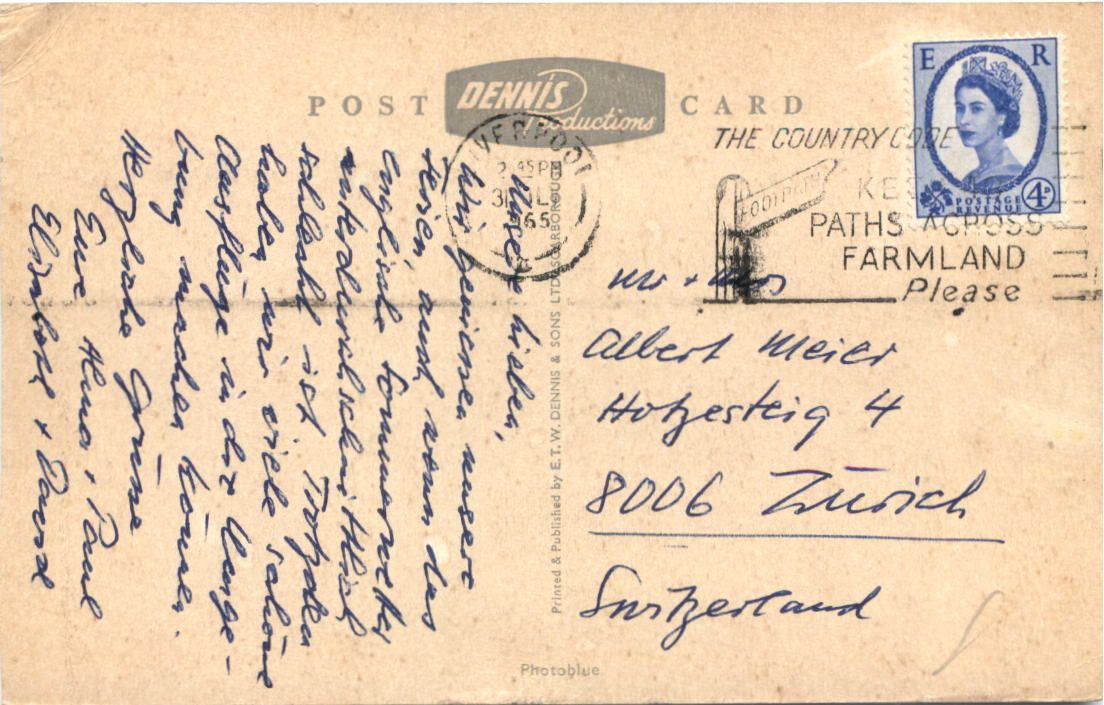 POST CARD
DENNIS
Productions
LIVERPOOL
2 45 PM
1965
THE COUNTRY CODE
FOOTPATH
PATHS ACROSS
FARMLAND
Please
E R
POSTAGE
REVENUE
4D
lieben,
Wir geniessen unsere
Ferien, auch wenn das
englische Sommerwetter
unterdurchschnittlich
schlecht ist. Trotzdem
haben wir viele schöne
Ausflüge in der Umge-
bung machen können.
Herzliche Grüsse
Eure
Elisabeth +
Printed & Published by E.T.W. DENNIS & SONS LTD. SCARBOROUGH
Mr + Mrs
Albert Meier
Hotzesteig 4
8006 Zürich
Switzerland
Photoblue